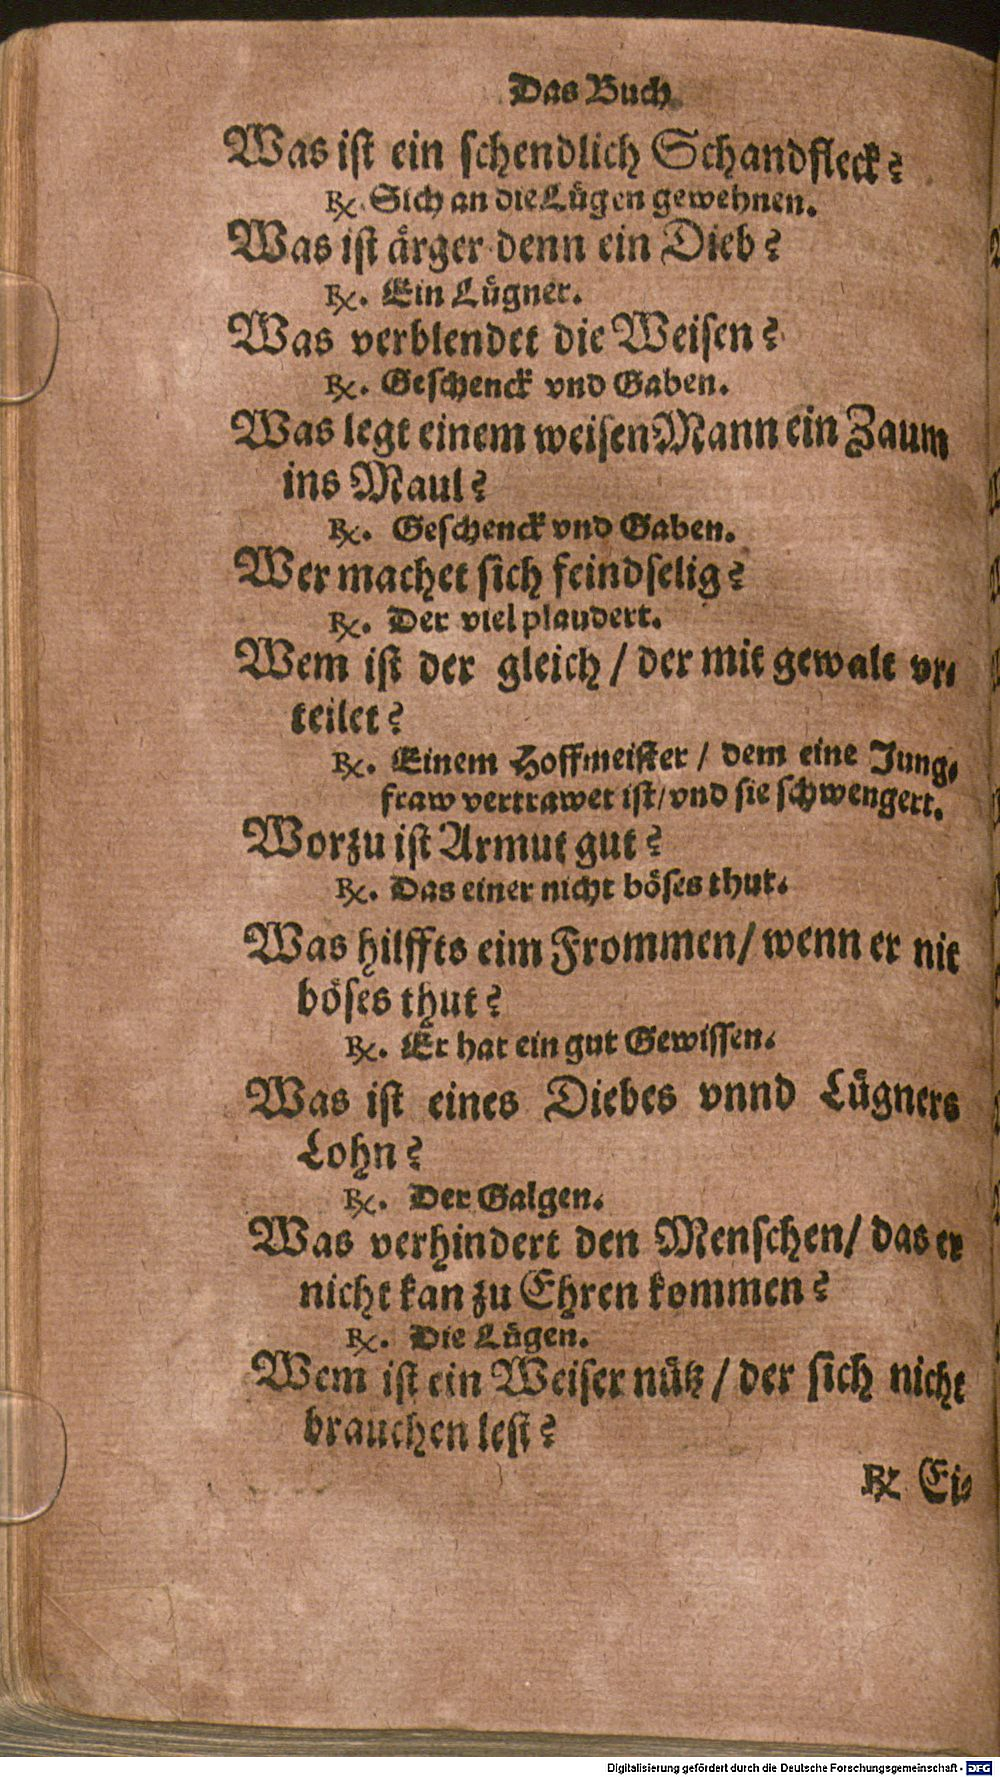 Das Buch
Was ist ein schendlich Schandfleck?
℞. Sich an die Lügen gewehnen.
Was ist ärger denn ein Dieb?
℞. Ein Lügner.
Was verblendet die Weisen?
℞. Geschenck vnd Gaben.
Was legt einem weisen Mann ein Zaum
ins Maul?
℞. Geschenck vnd Gaben.
Wer machet sich feindselig?
℞. Der viel plaudert.
Wem ist der gleich / der mit gewalt vr-
teilet?
℞. Einem Hoffmeister / dem eine Jung-
fraw vertrawet ist / vnd sie schwengert.
Worzu ist Armut gut?
℞. Das einer nicht böses thut.
Was hilffts eim Frommen / wenn er nit
böses thut?
℞. Er hat ein gut Gewissen.
Was ist eines Diebes vnnd Lügners
Lohn?
℞. Der Galgen.
Was verhindert den Menschen / das er
nicht kan zu Ehren kommen?
℞. Die Lügen.
Wem ist ein Weiser nütz / der sich nicht
brauchen lest?
℞ Ei-
Digitalisierung gefördert durch die Deutsche Forschungsgemeinschaft - DFG